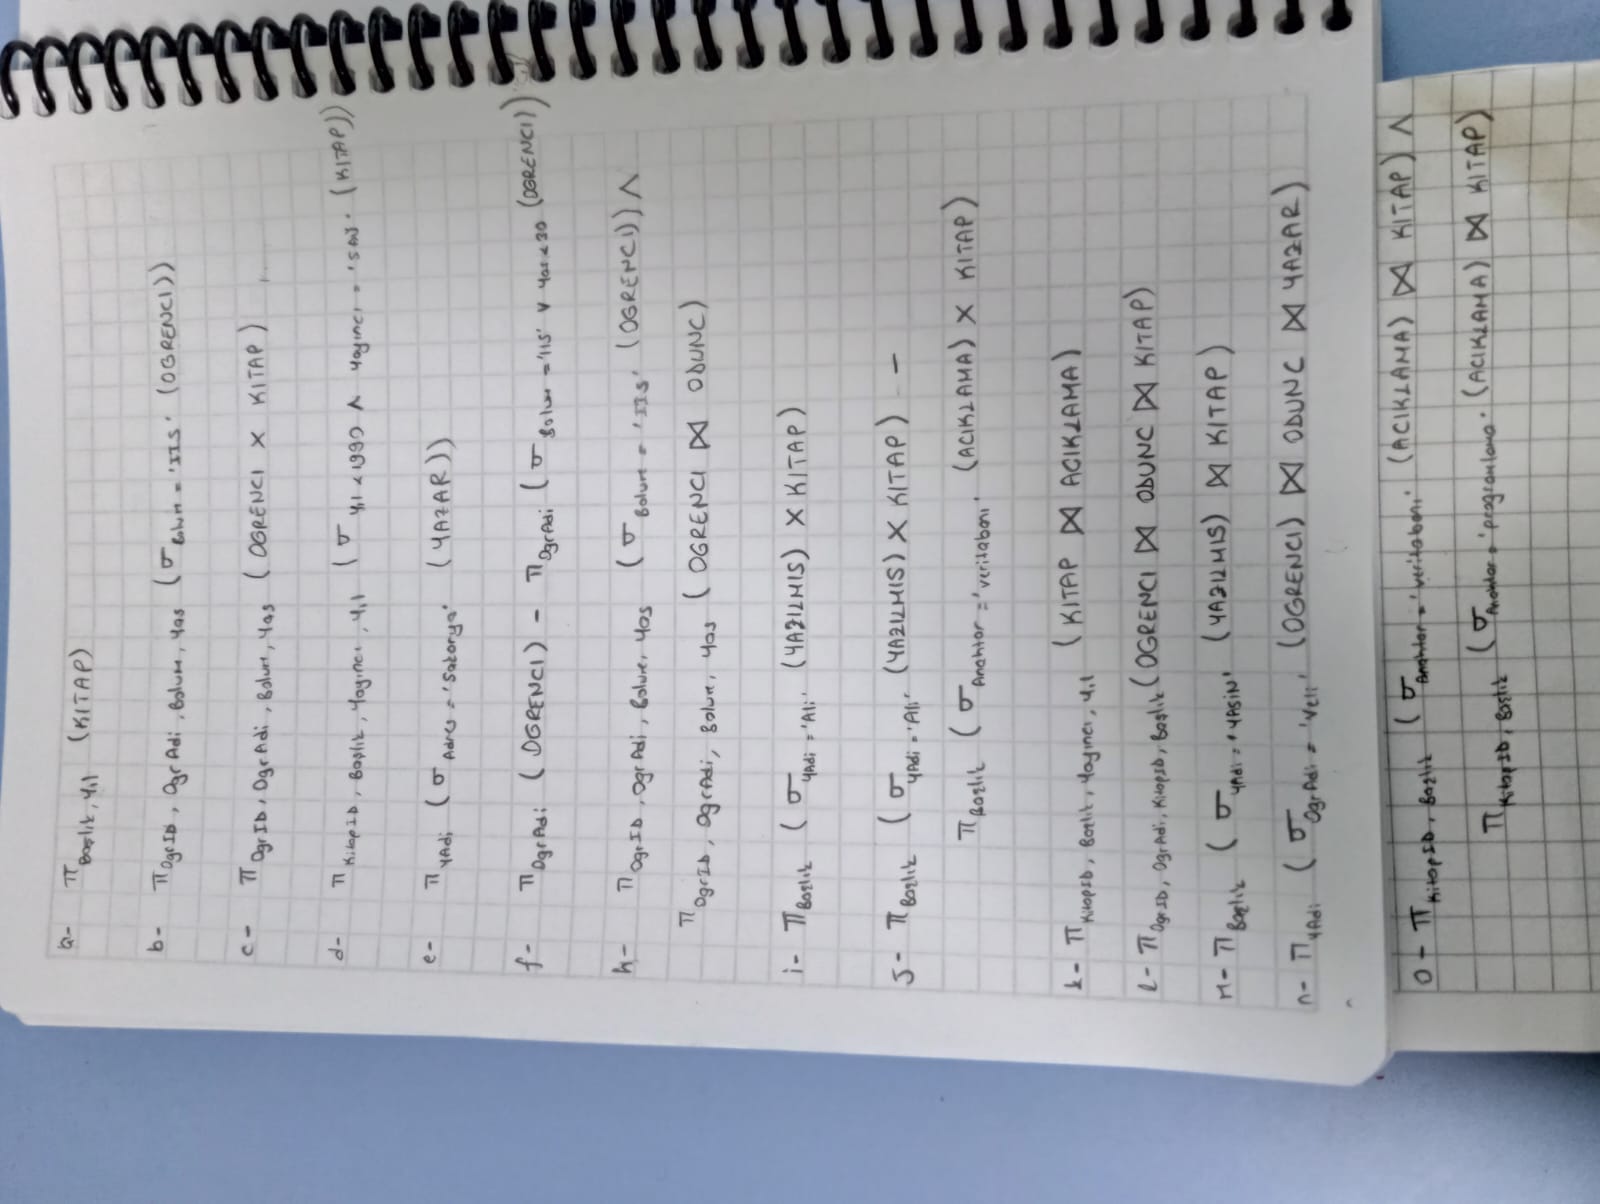 a- π Başlık, Yıl (KITAP)
b- π OgrID, OgrAdi, Bolum, Yas (σ Bolum = 'IIS' (OGRENCI))
c- π OgrID, OgrAdi, Bolum, Yas (OGRENCI X KITAP)
d- π KitapID, Başlık, Yayıncı, Yıl (σ Yıl < 1990 ∧ Yayıncı = 'SAÜ' (KITAP))
e- π YAdi (σ Adres = 'Sakarya' (YAZAR))
f- π OgrAdi (OGRENCI) - π OgrAdi (σ Bolum = 'IIS' ∨ Yas < 30 (OGRENCI))
h- π OgrID, OgrAdi, Bolum, Yas (σ Bolum = 'IIS' (OGRENCI)) ∧
π OgrID, OgrAdi, Bolum, Yas (OGRENCI ⋈ ODUNC)
i- π Başlık (σ YAdi = 'Ali' (YAZILMIS) X KITAP)
J- π Başlık (σ YAdi = 'Ali' (YAZILMIS) X KITAP) -
π Başlık (σ Anahtar = 'veritabanı' (ACIKLAMA) X KITAP)
k- π KitapID, Başlık, Yayıncı, Yıl (KITAP ⋈ ACIKLAMA)
l- π OgrID, OgrAdi, KitapID, Başlık (OGRENCI ⋈ ODUNC ⋈ KITAP)
M- π Başlık (σ YAdi = 'YASIN' (YAZILMIS) ⋈ KITAP)
n- π YAdi (σ OgrAdi = 'Veli' (OGRENCI) ⋈ ODUNC ⋈ YAZAR)
O- π KitapID, Başlık (σ Anahtar = 'veritabanı' (ACIKLAMA) ⋈ KITAP) ∧
π KitapID, Başlık (σ Anahtar = 'programlama' (ACIKLAMA) ⋈ KITAP)